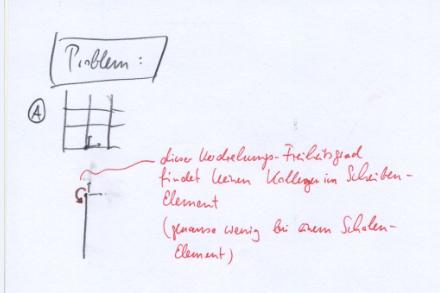 Problem:
A
dieser Verdrehungs-Freiheitsgrad
findet keinen Kollegen im Scheiben-
Element
(genauso wenig bei einem Schalen-
Element)